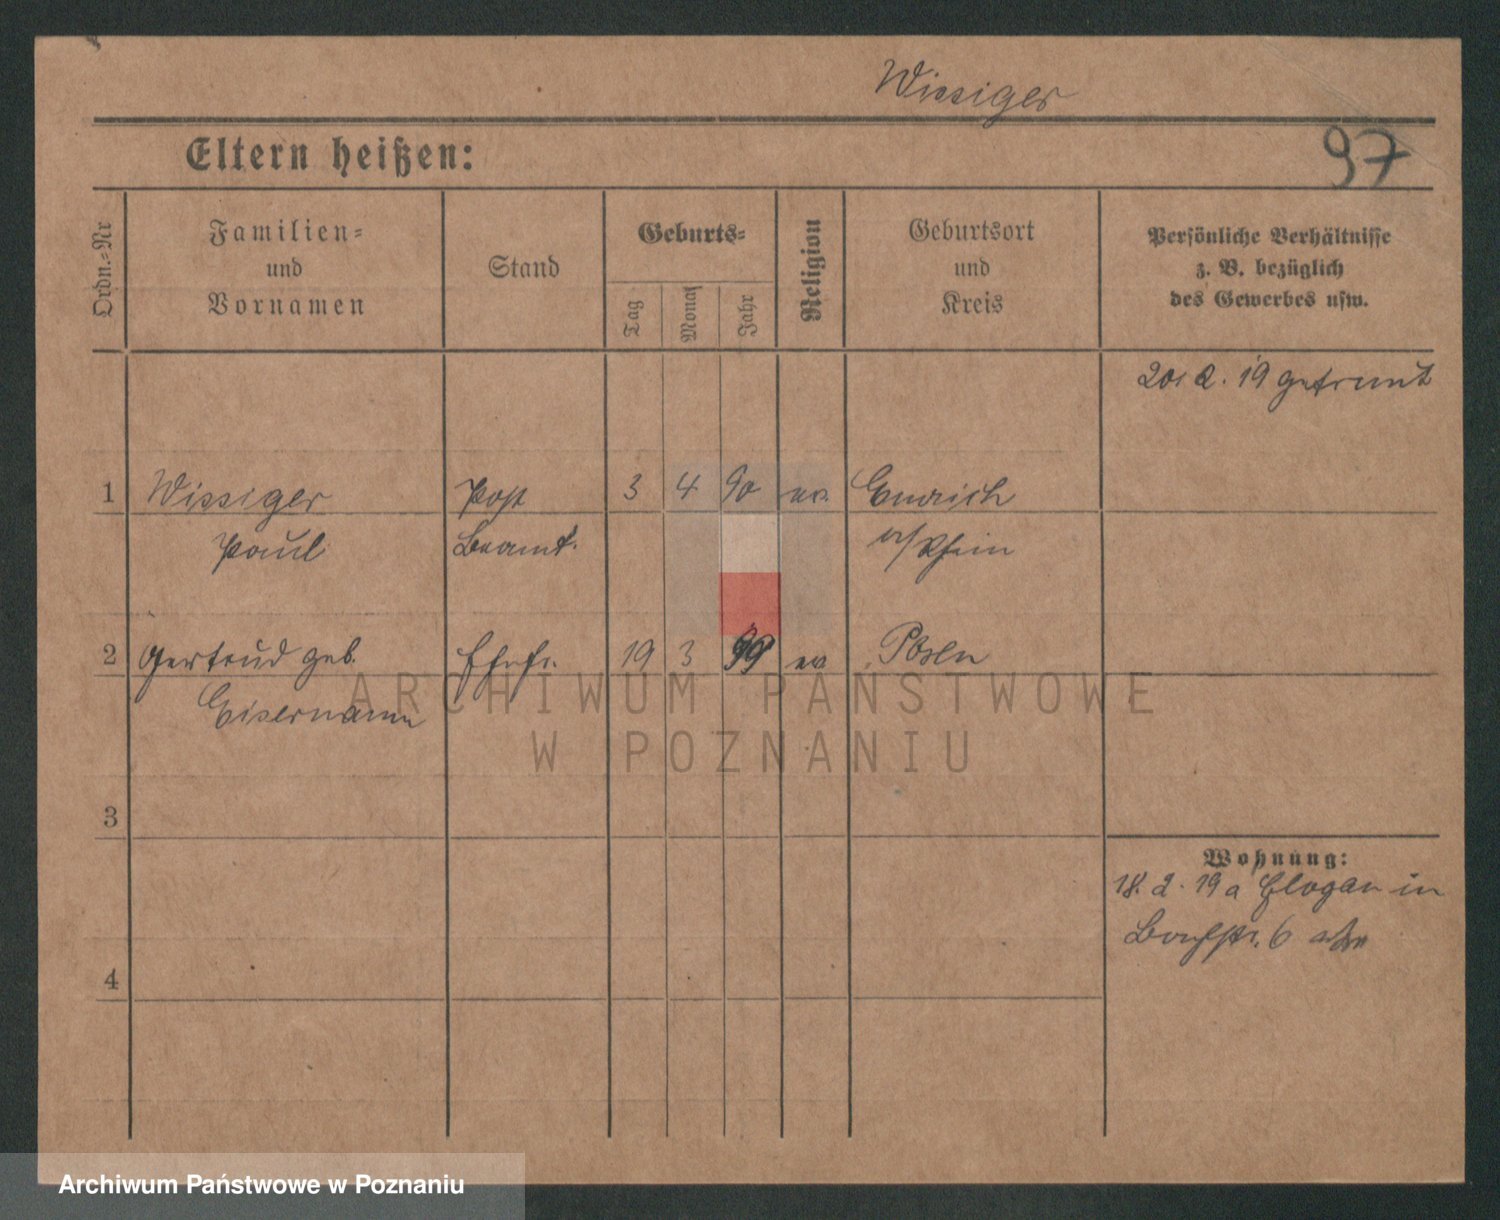 Wissiger
97
Eltern heißen:
Ordn.-Nr
Familien-
und
Vornamen
Stand
Geburts-
Tag
Monat
Jahr
Religion
Geburtsort
und
Kreis
Persönliche Verhältnisse
z. B. bezüglich
des Gewerbes usw.
20. 2. 19 getraut
1 Wissiger Post 3 4 90 ev. Emrich
Paul Beamt. a/Rhein
2 Gertrud geb. Ehefr. 19 3 99 ev Posen
Eisermann
ARCHIWUM PAŃSTWOWE
W POZNANIU
3
Wohnung:
18. 2. 19 a Glogau in
6
4
Archiwum Państwowe w Poznaniu